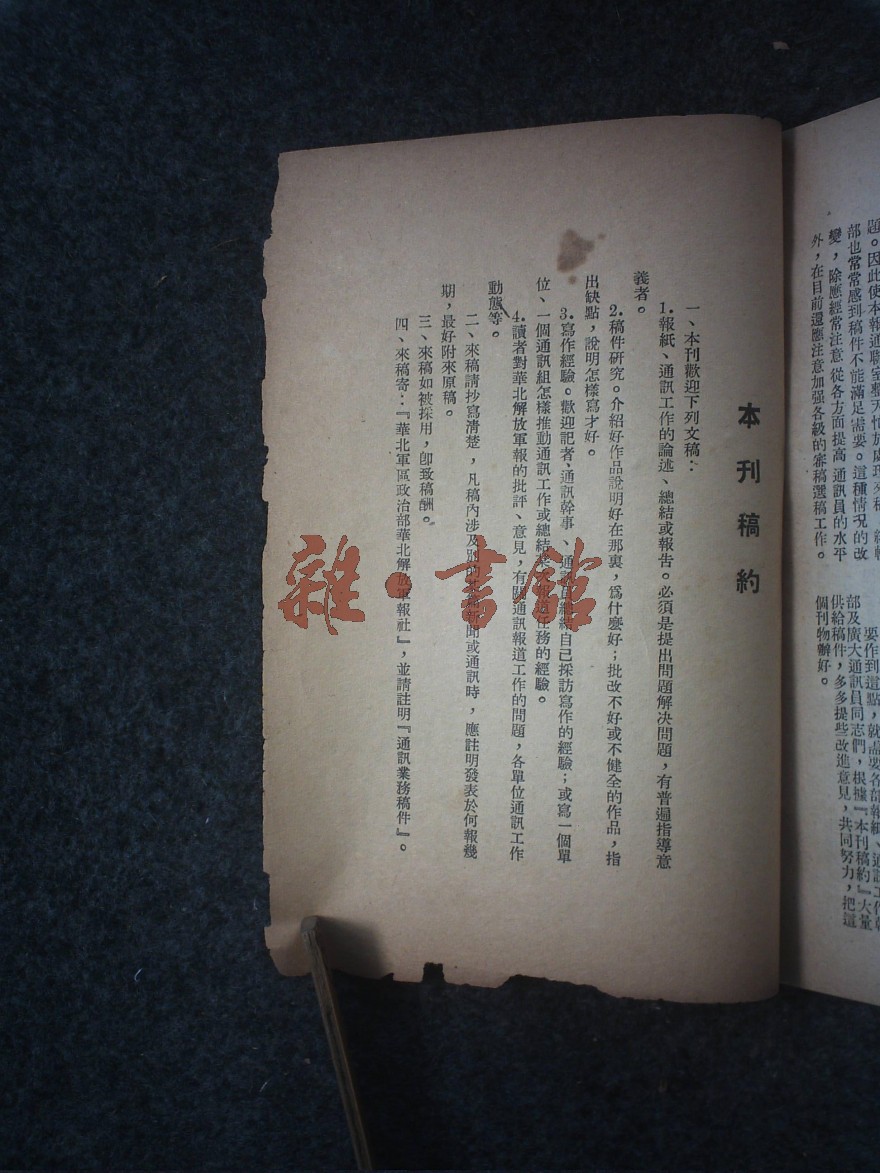 題。因此使本報通聯室整天忙於處理來稿，
部也常常感到稿件不能滿足需要。這種情況的改
變，除應經常注意從各方面提高通訊員的水平
外，在目前還應注意加强各級的審稿選稿工作。
要作到這點，就需要各部報紙、通訊工作幹
部及廣大通訊員同志們，根據『本刊稿約』大量
供給稿件，多多提些改進意見，共同努力，把這
個刊物辦好。
本刊稿約
一、本刊歡迎下列文稿：
1.報紙、通訊工作的論述、總結或報告。必須是提出問題解决問題，有普遍指導意
義者。
2.稿件研究。介紹好作品說明好在那裏，爲什麼好；批改不好或不健全的作品，指
出缺點，說明怎樣寫才好。
3.寫作經驗。歡迎記者、通訊幹事、通訊員總結自己採訪寫作的經驗；或寫一個單
位、一個通訊組怎樣推動通訊工作或總結某次報道任務的經驗。
4.讀者對華北解放軍報的批評、意見，有關通訊報道工作的問題，各單位通訊工作
動態等。
二、來稿請抄寫清楚，凡稿內涉及別的新聞或通訊時，應註明發表於何報幾
期，最好附來原稿。
三、來稿如被採用，卽致稿酬。
四、來稿寄：『華北軍區政治部華北解放軍報社』，並請註明『通訊業務稿件』。
雜·書館